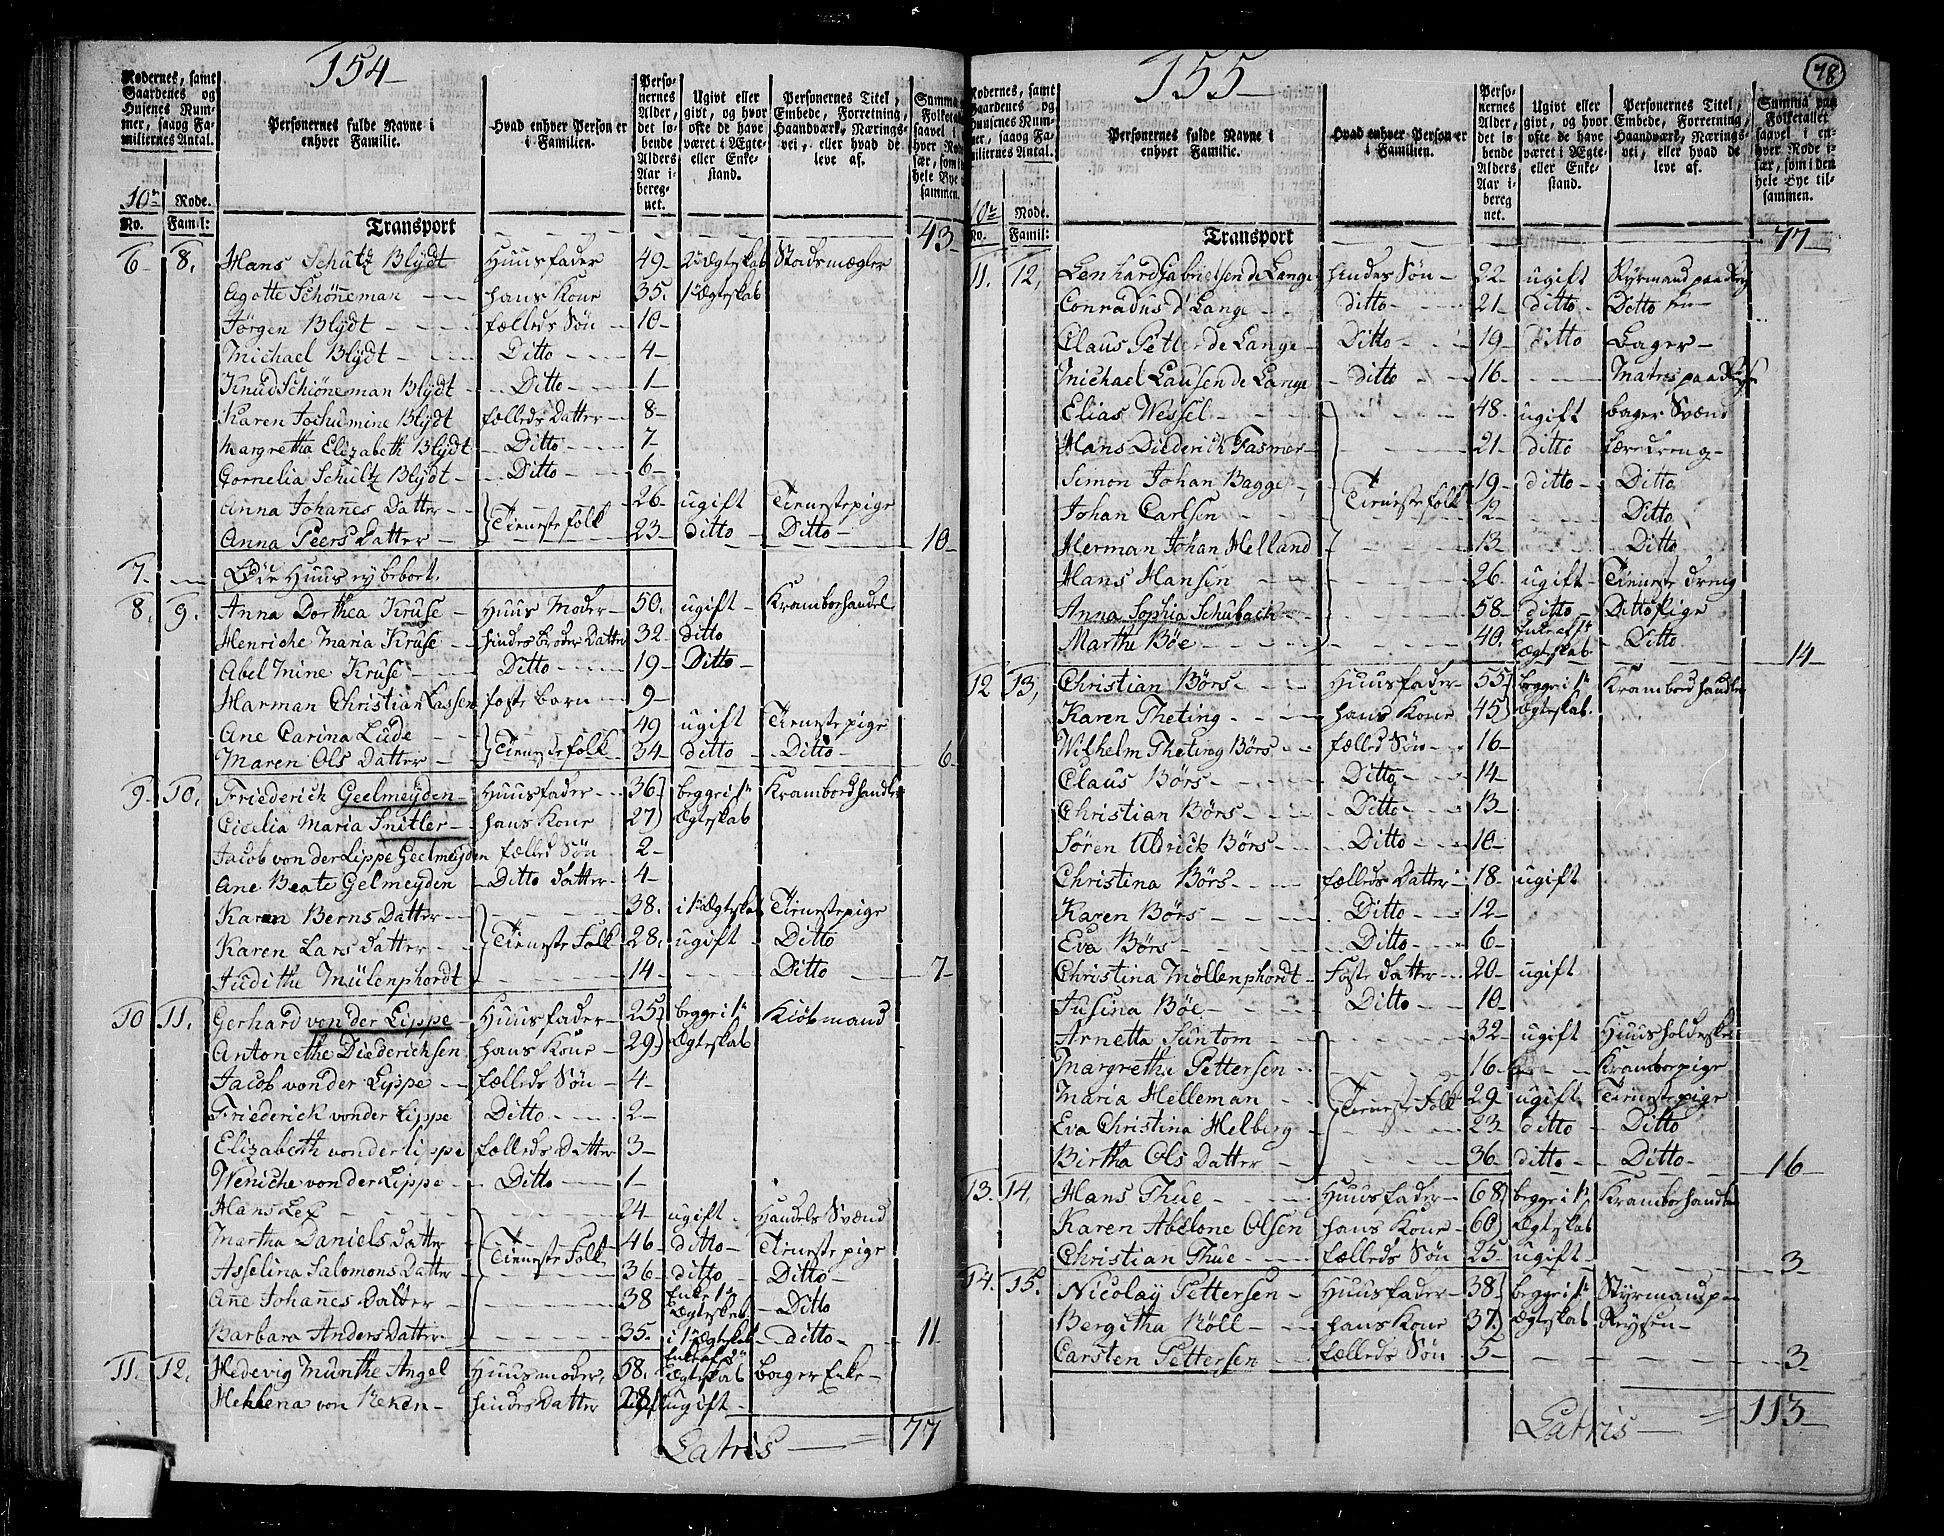 154
Rodernes, samt Gaardenes og Husenes Nummer, saavog Familiernes Antal.
Personernes fulde Navne i enhver Familie.
Hvad enhver Person er i Familien.
Personernes Alder, det løbende Alders Aar iberegnet.
Ugivt eller givt, og hvor ofte de have været i Ægte- eller Enkestand.
Personernes Titel, Embede, Forretning, Haandværk, Næringsvei, eller hvad de leve af.
Summa Folketal saavel i enhver Rode især, som i hele Bye sammen.
10de Rode.
No. Famil:
Transport - 43
6 8. Hans Schultz Blydt Huusfader 49 2det Ægteskab Stadsmægler
Agotte Schöneman hans Kone 35. 1te Ægteskab
Jörgen Blydt fælleds Søn 10
Michael Blydt Ditto 4
Knud Schiöneman Blÿdt Ditto 1
Karen Jochumine Blÿdt fælleds Datter 8
Margretta Elizabeth Blÿdt Ditto 7
Cornelia Schultz Blÿdt Ditto 6
Anna Johanes Datter Tieneste folk 26 ugift Tienestepige
Anna Peers Datter 23 ditto Ditto 10
7. Øde Huus ey bebort.
8. 9. Anna Dorthea Kruse Huus Moder 50. ugift Kramborhandel
Henriche Maria Kruse hindes broder Datter 32 ditto
Abel Mine Kruse Ditto 19 Ditto
Harman Christian Lassen foste barn 9
Ane Carina Lüde Tienestefolk 49 ugift Tienestepige
Maren Ols Datter 34 ditto Ditto 6
9 10. Friederich Geelmeyden Huusfader 36 begge i 1te Krambordhandler
Cicilia Maria Snitler hans Kone 27 Ægteskab
Jacob von der Lippe Geelmeyden fælleds Søn 2
Ane Beate Gelmeyden Ditto datter 4
Karen Berns Datter Tieneste Folk 38. i 1te Ægteskab Tienestepige
Karen Lars datter 28. ugift Ditto
Judithe Mülenphordt 14 Ditto 7
10 11. Gerhard von der Lippe Huusfader 25 begge i 1te Kiöbmand
Antonethe Diederichsen hans Kone 29 Ægteskab
Jacob von der Lippe fælleds Søn 4
Friederick von der Lippe Ditto 2
Elizabeth von der lippe fælleds Datter 3
Weniche von der Lippe Ditto 1
Hans Lex 24 ugift Handels Svænd
Martha Daniels datter Tieneste Folk 46 ditto Tienestepige
Asselina Salomons Datter 36 ditto Ditto
Ane Johanes Datter 38 Enke 1te Ægteskab Ditto
Barbara Anders Datter 35. i 1te Ægteskab ditto 11
11. 12. Hedevig Munthe Angel Huusmoder 58. Enke af 2det Ægteskab bager Enke
Hehlena von Reken hindes Datter 28 ugift
Latris 77
155
78
Rodernes, samt Gaardenes og Husenes Nummer, saavog Familiernes Antal.
Personernes fulde Navne i enhver Familie.
Hvad enhver Person er i Familien.
Personernes Alder, det løbende Alders Aar iberegnet.
Ugivt eller givt, og hvor ofte de have været i Ægte- eller Enkestand.
Personernes Titel, Embede, Forretning, Haandværk, Næringsvei, eller hvad de leve af.
Summa paa Folketallet saavel i enhver Rode især, som i den hele Bye tilsammen.
10de Rode.
No. Famil:
Transport 77
11. 12. Lenhard Gabrielsen de Lange hindes Søn 22 ugift Styrmand paa Rey
Conradus d'Lange ditto 21 ditto Ditto
Claus Petter de Lange Ditto 19 ditto Bager
Michael Lausen de Lange ditto 16 Matros paa Reyse
Elias Wessel 48 ugift bager Svænd
Hans Diederick Fasmer 21 ditto læredreng
Simon Johan Bagge Tieneste folk 19 ditto Ditto
Johan Carlsen 12 Ditto
Herman Johan Helland 13 Ditto
Hans Hansen 26 ugift Tieneste dreng
Anna Sophia Schuback 58 ditto Ditto Pige
Marthe Böe 40. Enke af 1te Ægteskab Ditto 14
12 13. Christian Börs Huusfader 55 begge i 1te Krambordhandler
Karen Theting hans Kone 45 Ægteskab
Wilhelm Theting Börs fælleds Søn 16
Claus Börs Ditto 14
Christian Börs Ditto 13
Sören Uldrick Börs Ditto 10
Christina Börs fælleds Datter 18 ugift
Karen Börs Ditto 12
Eva Börs Ditto 6
Christina Möllenphordt Foste datter 20 ugift
Susina Böe Ditto 10
Arnetta Suntom 32 ugift Huusholderske
Margrethe Pettersen 16 Kramborpige
Maria Helleman Tieneste Folk 29 ugift Tienestepige
Eva Christina Helberg 23 ditto Ditto
Birtha Ols Datter 36 ditto Ditto 16
13. 14. Hans Thue Huusfader 68 begge i 1te Kramborhandler
Karen Abelone Olsen hans Kone 60 Ægteskab
Christian Thue fælleds Søn 25 ugift 3
14. 15. Nicolay Pettersen Huusfader 38 begge i 1te Styrmand paa
Bergitha Röll hans Kone 37 Ægteskab Reysen
Carsten Pettersen fælleds Søn 5 3
Latris 113